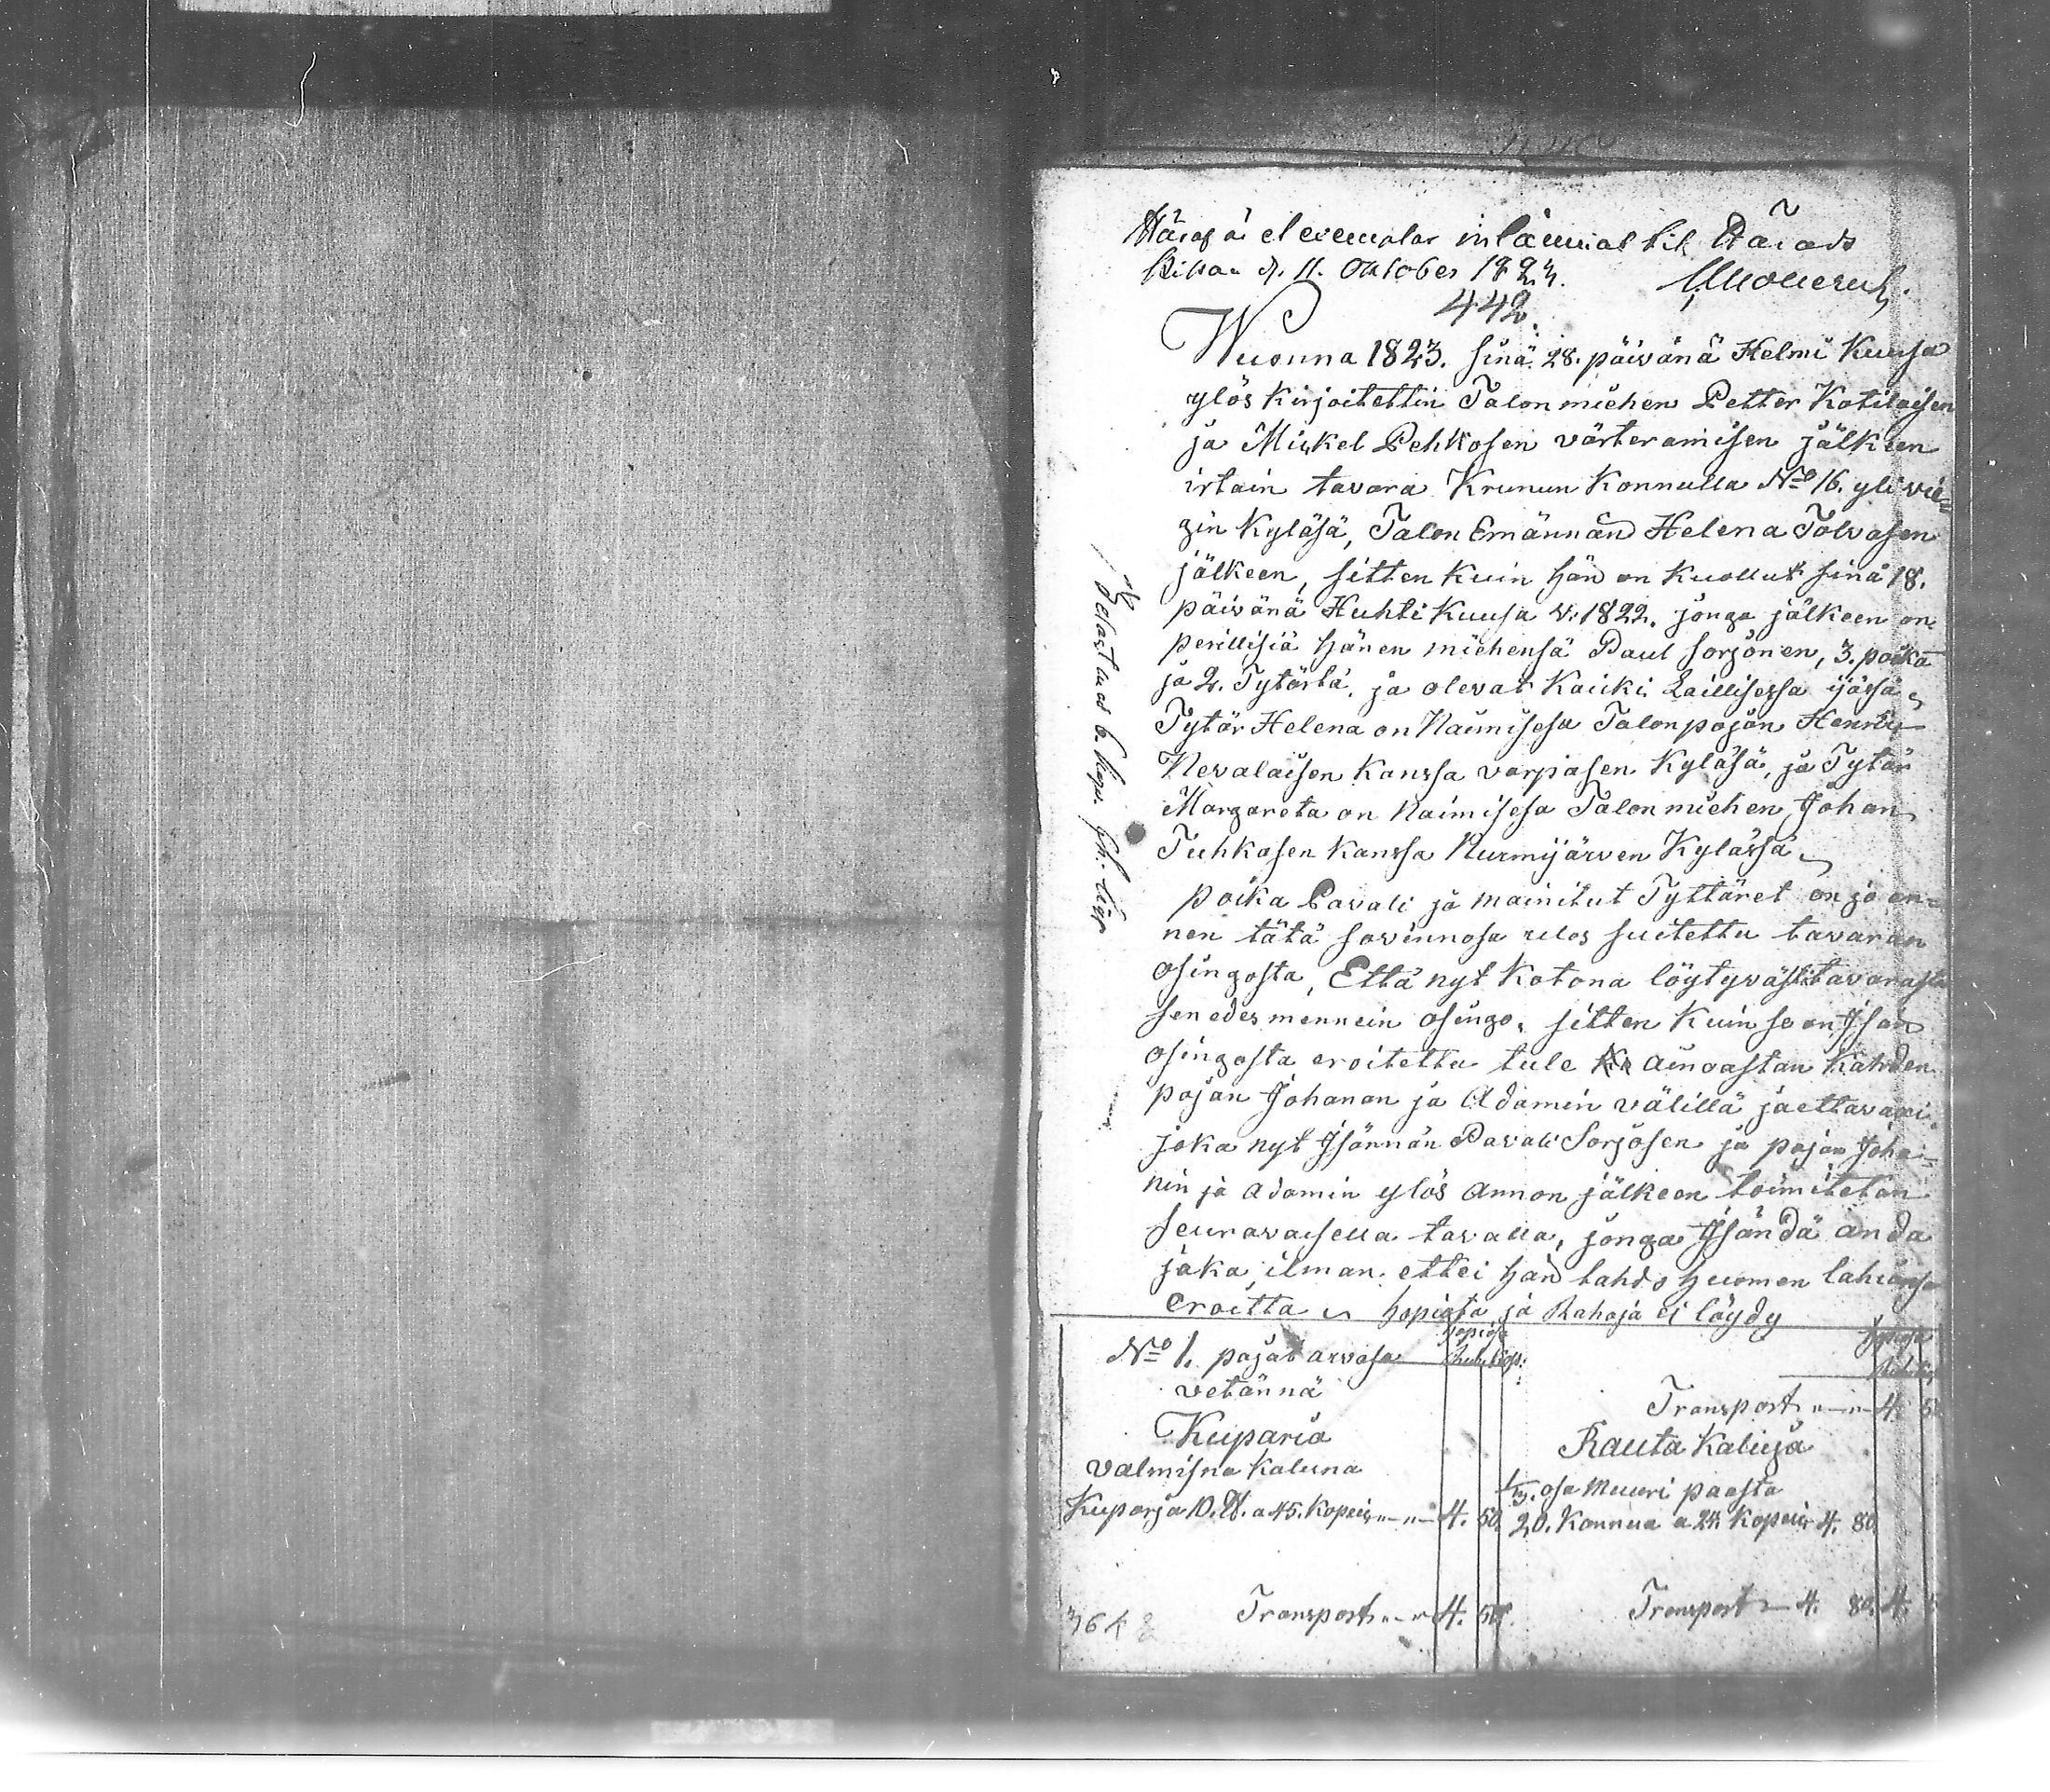 exemplar inlämnat till Härads
Kistan d. 11. Oktober 1823.
442.
Wuonna 1823. sinä 28. päivänä Helmi Kuusa
ylös kirjoitettin Talon miehen Petter Kotilaisen
ja Mickel Pehkosen värteramisen jälkeen
irtain tavara Krunun Konnulla No 16. yli vie=
gin Kyläsä, Talon Emännän Helena Tolvasen
jälkeen, sitten kuin hän on kuollut sinä 18.
päivänä Huhti Kuusa v: 1822. jonga jälkeen on
perillisiä hänen miehensä Paul Sorjonen, 3. poika
ja 2. Tytärtä, ja olevat kaicki Laillisessa ijässä,
Tytär Helena on Naimisesa Talonpojan Henrik
Nevalaisen kanssa varpasen Kyläsä, ja Tytär
Margareta on Naimisesa Talon miehen Johan
Tuhkasen kanssa Nurmijärven Kylässä
poika Pavali ja mainitut Tyttäret on jo en=
nen tätä sovinnosa ulos suitettu tavaran
osingosta, Että nyt kotona löytyvästä tavarasta
sen edes mennein osingo, sitten kuin se on Isän
osingosta eroitettu tule ainoastan kahden
pojan Johanan ja Adamin välillä jaettavaxi
joka nyt Isännän Pavali Sorjosen ja pojan Joha=
nin ja Adamin ylös annon jälkeen toimitetan
seuravaisella tavalla, jonga Isändä anda
jaka, ilman ettei hän tahdo huomen lahiansa
eroitta hopiata ja Rahoja ei löydy
Delactud 6. kop.
No 1. pojat arvosa
vetännä
Hopiosa
Rub. Cop:
Kuparia
valmisna kaluna
Kuparja 10. ℔. a 45. Kopeic 4. 50.
Transport 4. 50.
Transport 4. 50
Rauta Kaluja
1/3. osa Muuri paasta
20. Kannua a 24 Kopeic 4. 80.
Transport 4. 80. 4.